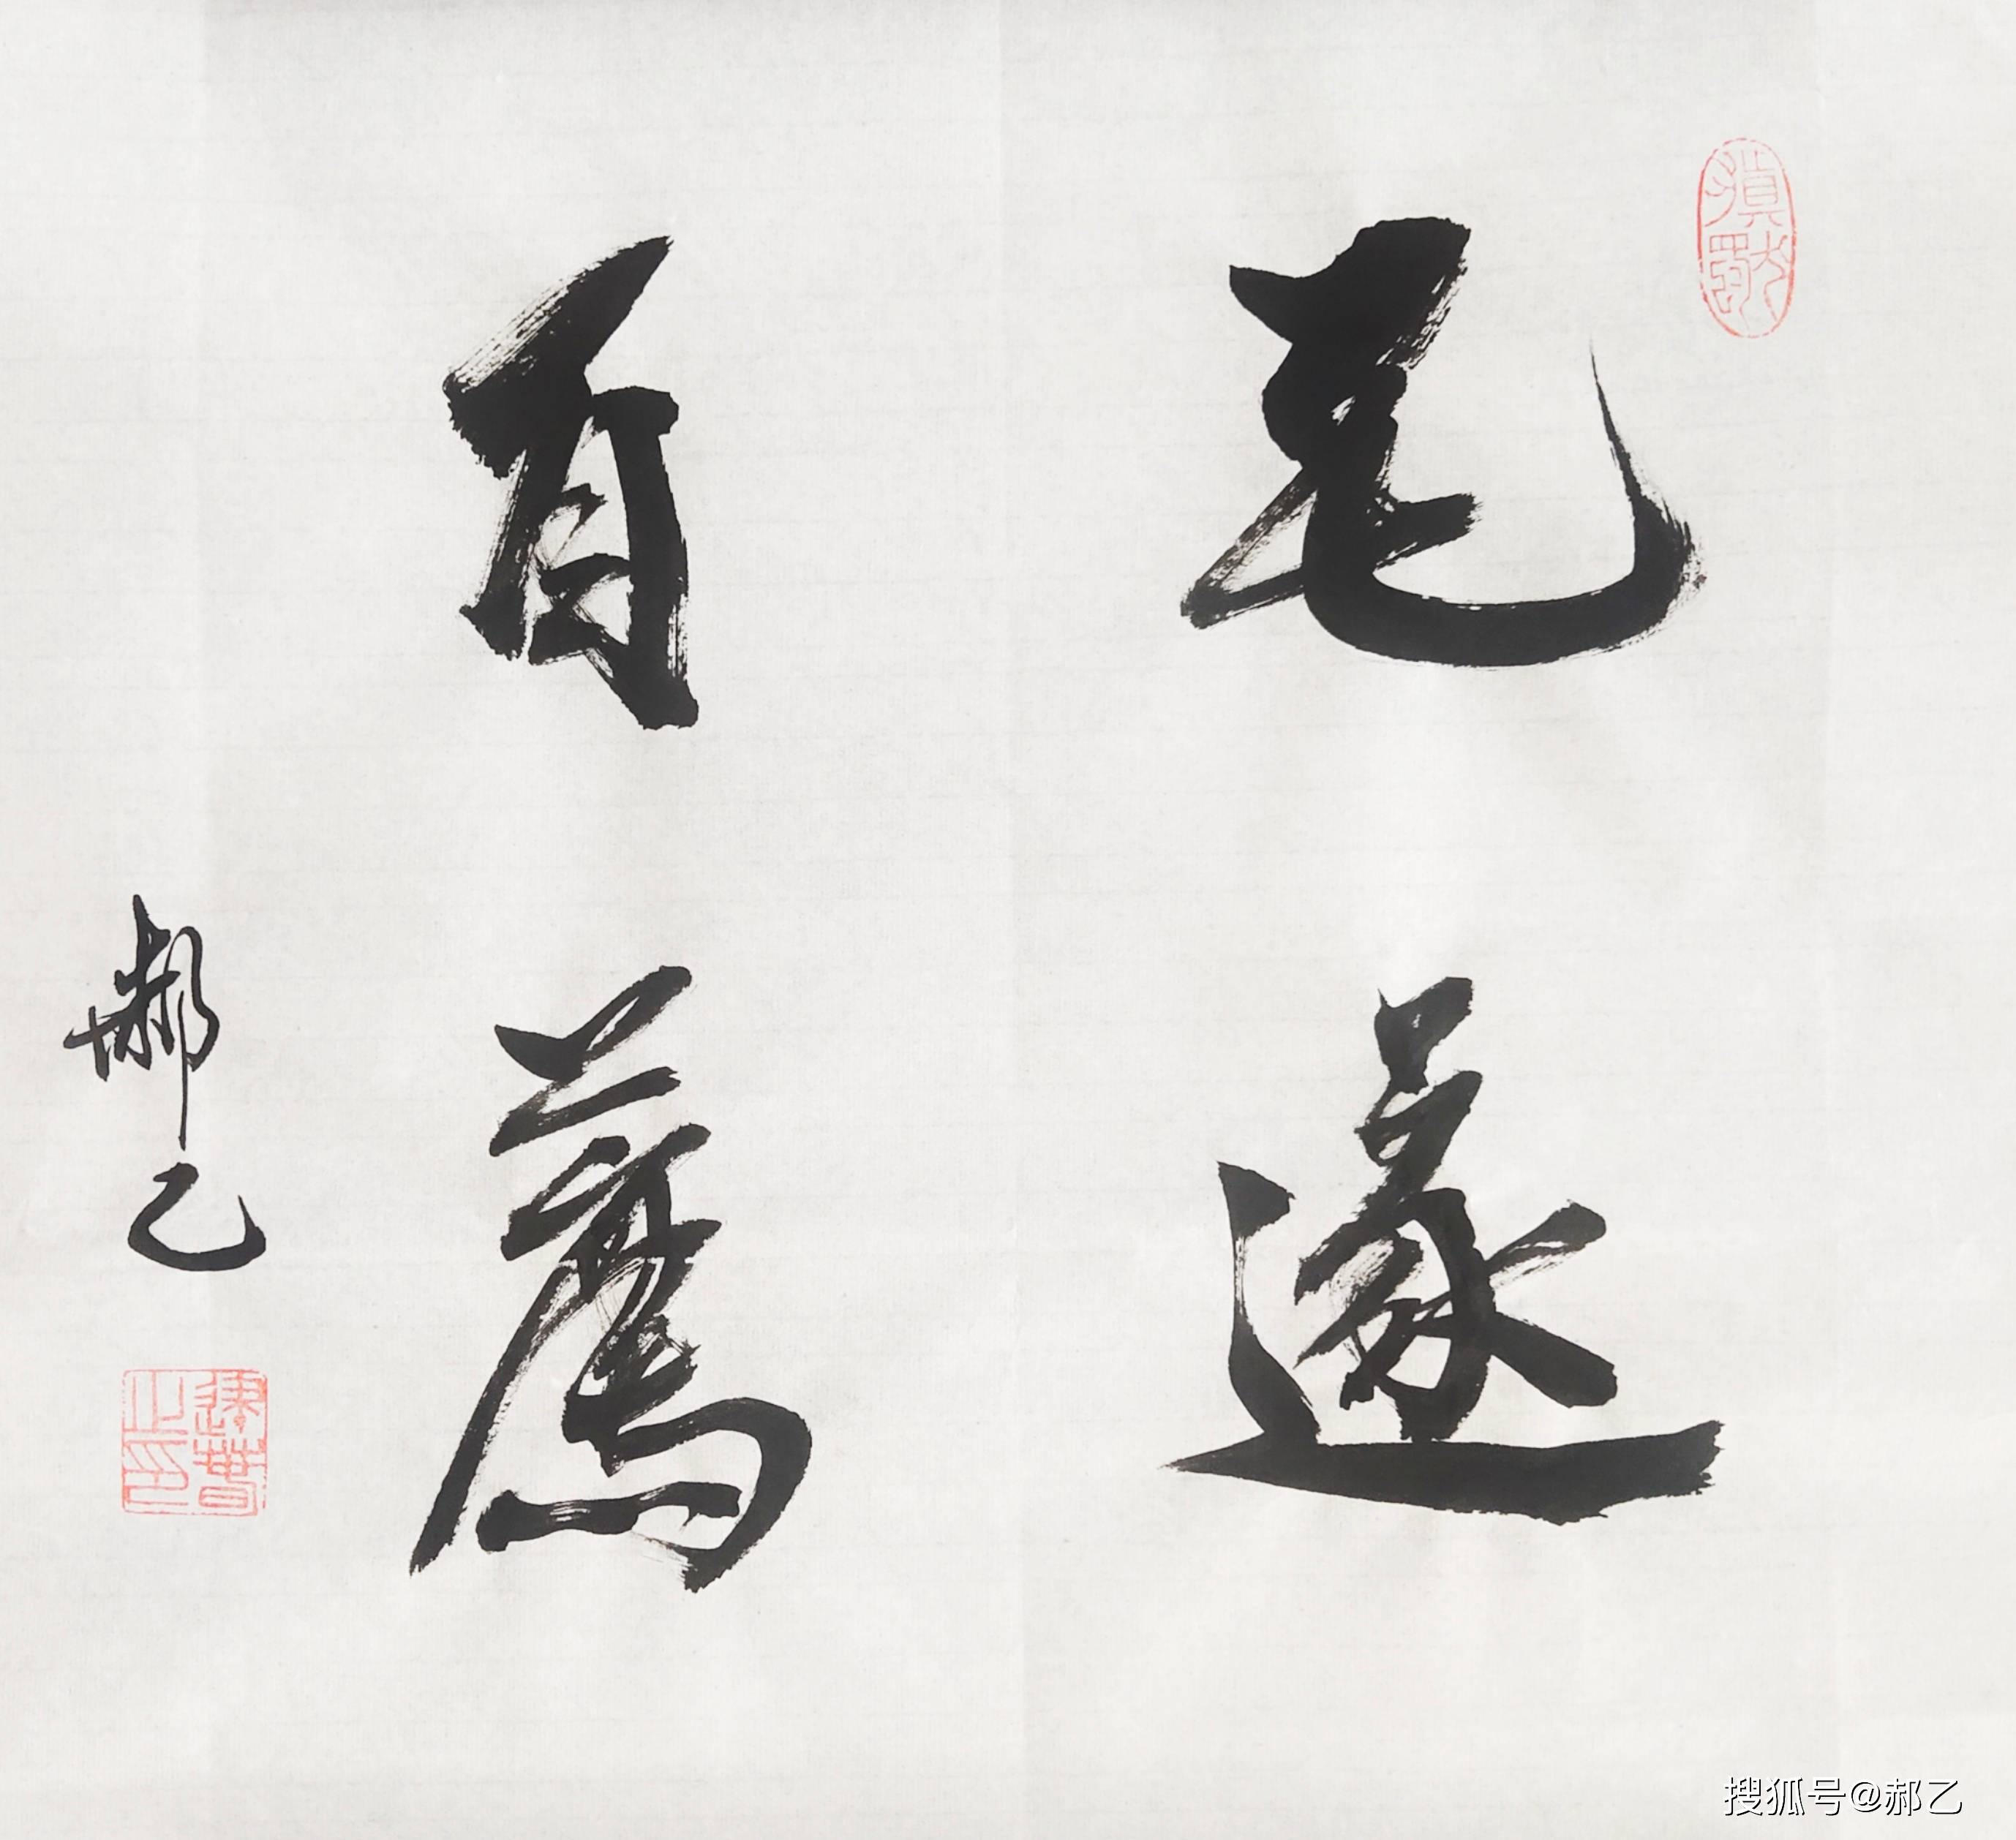 毛遂
自薦
郝乙
搜狐号@郝乙